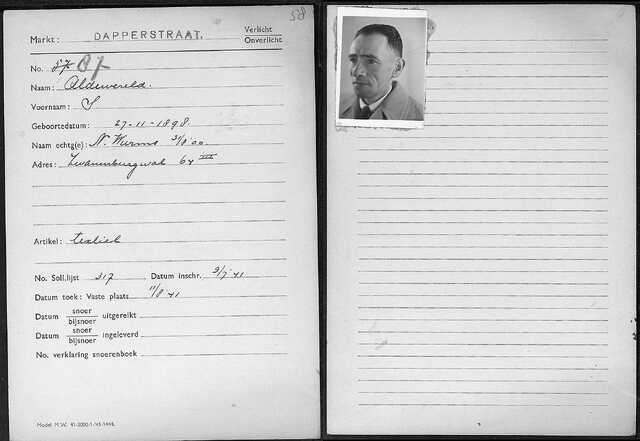 58
Markt: DAPPERSTRAAT. Verlicht Onverlicht
No. 57 87
Naam: Aldewereld.
Voornaam: S
Geboortedatum: 27-11-1898.
Naam echtg(e): N. Worms
Adres: Zwanenburgwal 64 III
Artikel: textiel
No. Soll.lijst 317 Datum inschr. 9/7 41
Datum toek: Vaste plaats 11/8 41
Datum snoer bijsnoer uitgereikt
Datum snoer bijsnoer ingeleverd
No. verklaring snoerenboek